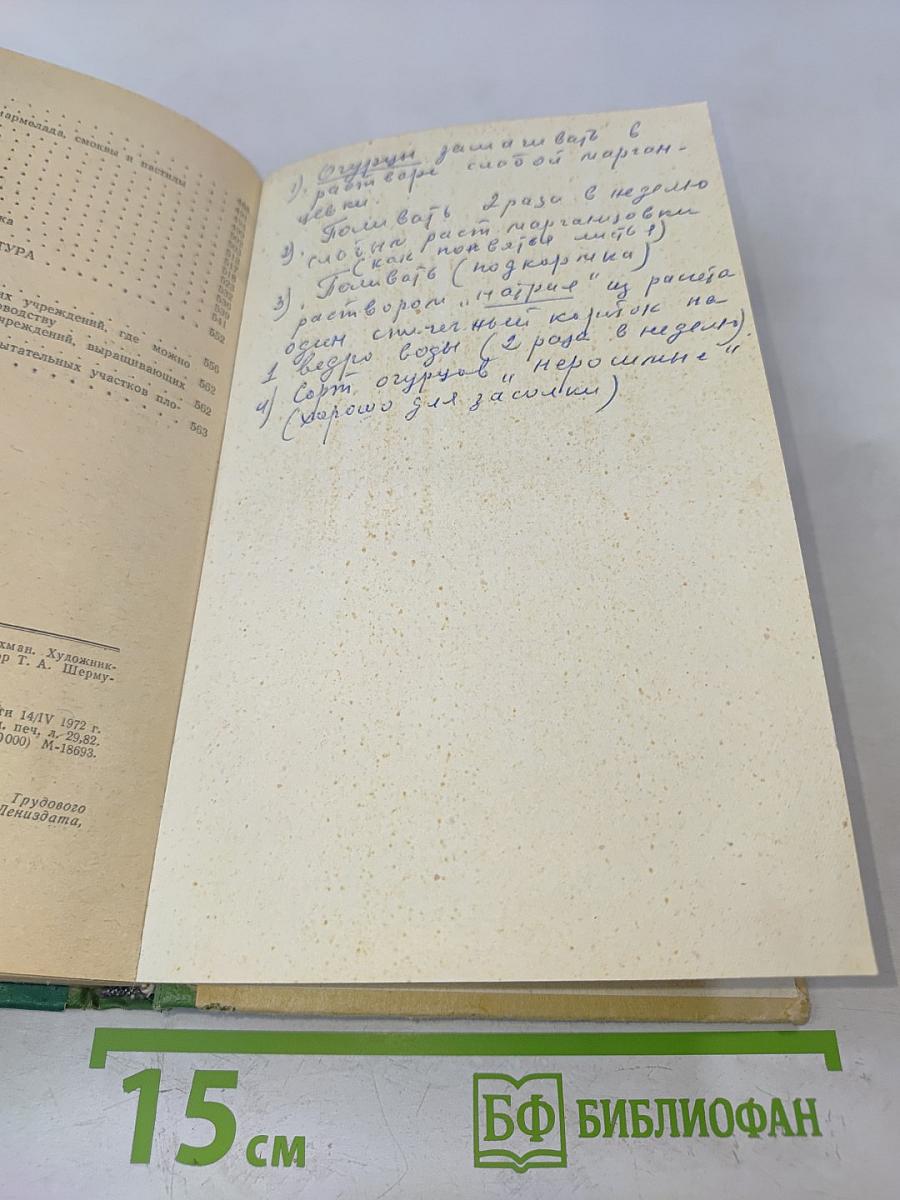 мармелада, смоквы и пастилы
ка
ТУРА
539
541
552
их учреждений, где можно 556
оводству
чреждений, выращивающих 562
562
ытательных участков пло-
563
хман. Художник-
ор Т. А. Шерму-
ти 14/IV 1972 г.
л. печ, л. 29,82.
0000) М-18693.
Трудового
Лениздата,
1). Огурцы замачивать в
растворе слабой марган-
цевки.
2). Поливать 2 раза в неделю
слабым раст. марганцовки
(как появятся листья)
3). Поливать (подкормка)
раствором „натрия" из расчета
один спичечный коробок на
1 ведро воды (2 раза в неделю).
4) Сорт огурцов "
(хорошо для засолки)
15 см
БФ БИБЛИОФАН